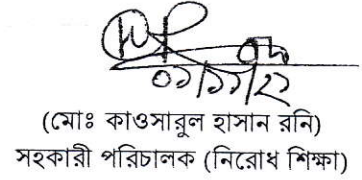 ০১/১১/২২
(মোঃ কাওসারুল হাসান রনি)
সহকারী পরিচালক (নিরোধ শিক্ষা)